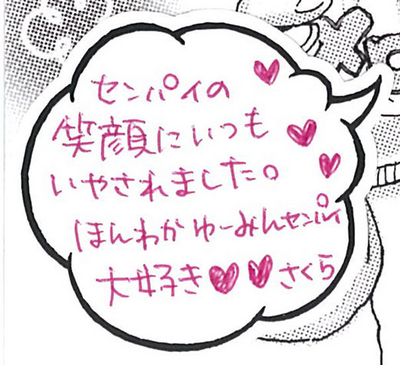 センパイの♥
笑顔にいつも♥
いやされました。♥
ほんわかゆーみんセンパイ
大好き♥♥さくら